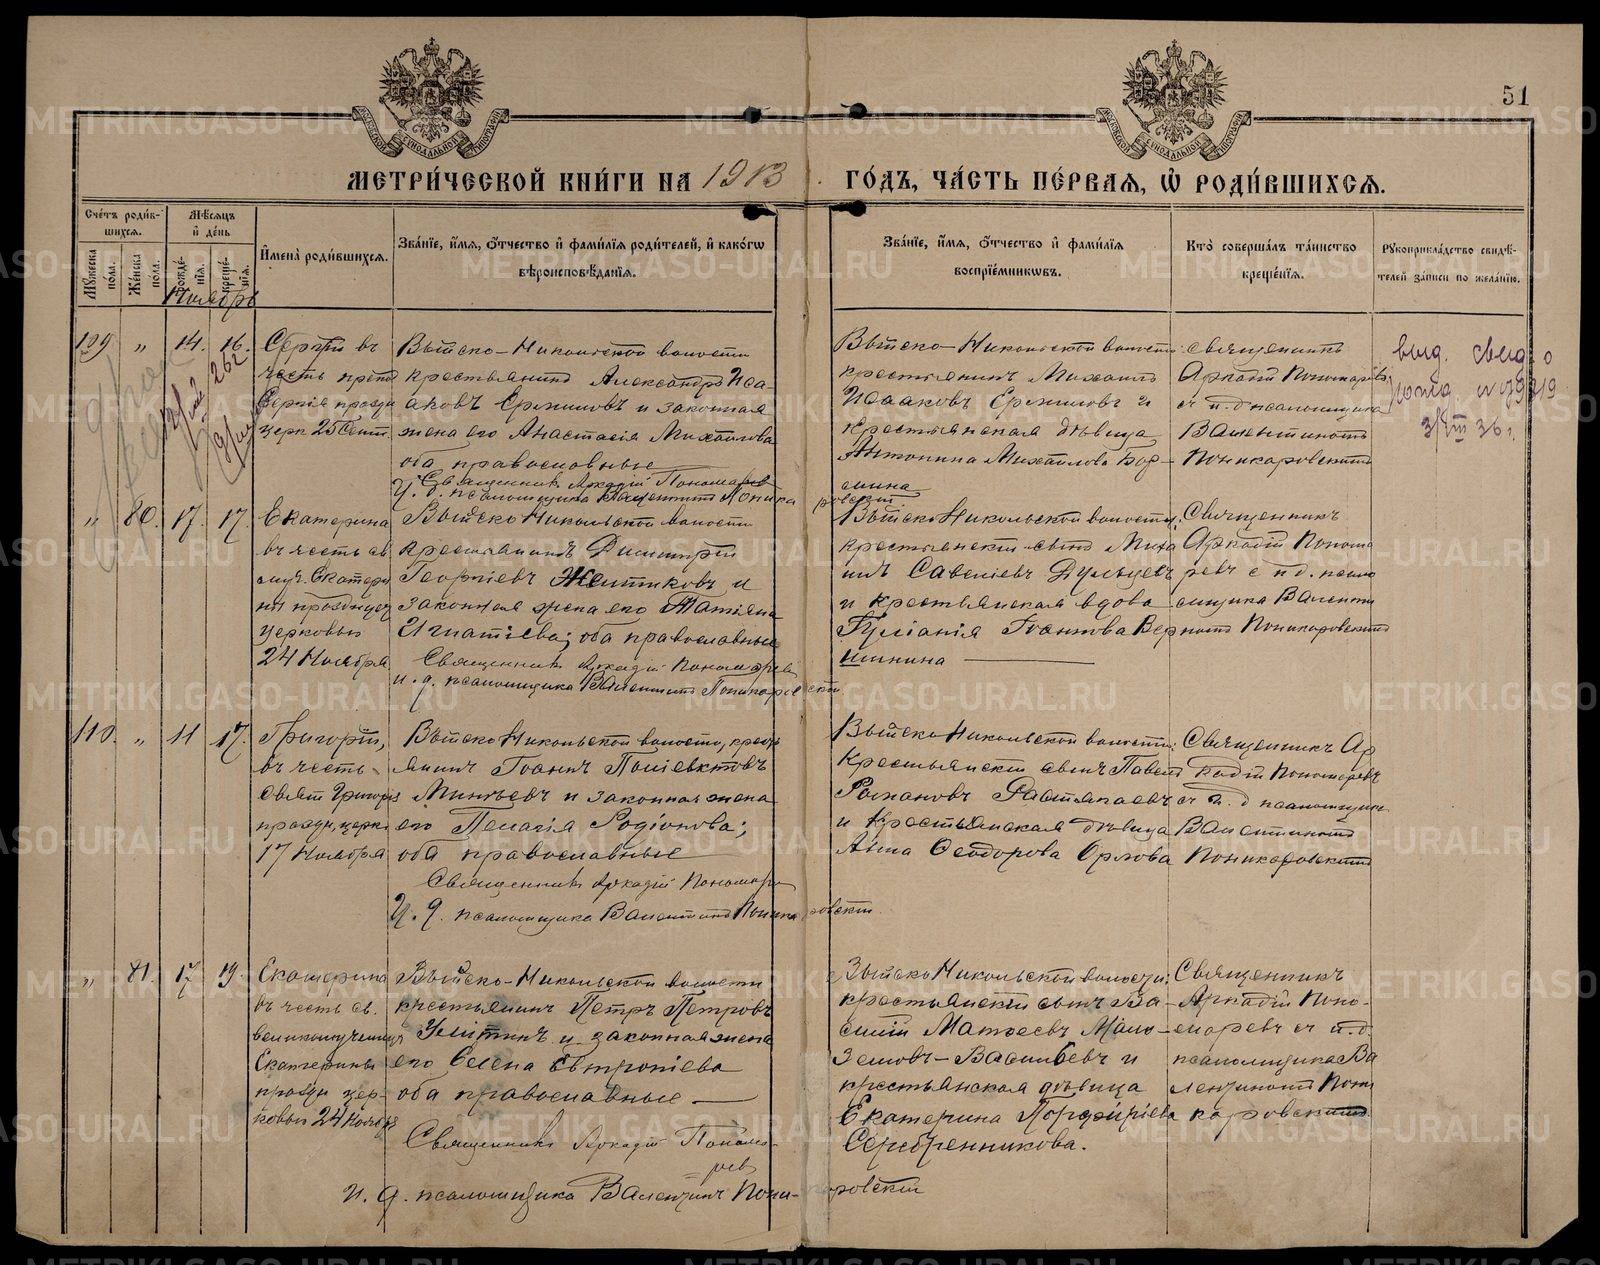 51
МЕТРИ́ЧЕСКОЙ КНИ́ГИ НА 1913 ГО́ДЪ, ЧА́СТЬ ПЕ́РВАЯ, Ѿ РОДИ́ВШИХСЯ.
Сче́тъ роди́в-
шихся.
Мѣсяцъ
и де́нь
Му́жеска по́ла.
Же́нска по́ла.
рожде́-
нїя.
креще́-
нїя.
Имена̀ роди́вшихся.
Зва́нїе, и́мя, о́тчество и фами́лїя роди́телей, и како́гѡ
вѣроисповѣ́данїя.
Зва́нїе, и́мя, о́тчество и фами́лїя
воспрїе́мникѡвъ.
Кто̀ соверша́лъ та́инство
креще́нїя.
Рукоприкла́дство свидѣ́-
телей за́писи по жела́нїю.
Ноябрь
109 " 14. 16.
Сергій въ
честь преп.
Сергія праздн
церк 25 Сент.
Выйско-Никольской волости
крестьянинъ Александръ Иса-
аковъ Ермиловъ и законная
жена его Анастасія Михайлова
оба православные
Священникъ Аркадій Пономаревъ
И. д. псаломщика Валентинъ Поника
ровский
Выйско-Никольской волости
крестьянинъ Михаилъ
Исааковъ Ермиловъ и
крестьянская дѣвица
Антонина Михайлова Бор-
мина
священникъ
Аркадій Пономаревъ
съ и. д псаломщика
Валентиномъ
Поникаровскимъ
выд. свид о
3/VIII 36 г.
" 80. 17. 17.
Екатерина
въ честь св
муч. Екатери
ны празднуем
церковью
24 Ноября
Выйско Никольской волости
крестьянинъ Димитрій
Георгіевъ Житниковъ и
законная жена его Татіана
Игнатіева; оба православные
Священникъ Аркадій Пономаревъ
и. д. псаломщика Валентинъ Поникаровскій
Выйско Никольской волости:
крестьянскій сынъ Миха
илъ Савеліевъ Дульцевъ
и крестьянская вдова
Іуліанія Іоаннова Вер
шинина
Священникъ
Аркадій Понома
ревъ с и д. псало
мщика Валенти
номъ Поникаровскимъ
110. " 11 17.
Григорій,
въ честь
Свят Григорія
праздн. церк.
17 Ноября
Выйско Никольской волости, крест
янинъ Іоаннъ Поліевктовъ
Минѣевъ и законная жена
его Пелагія Родіонова;
оба православные
Священникъ Аркадій Пономаре
И. д. псаломщика Валентинъ Поникаровскій
Выйско Никольской волости:
Крестьянскій сынъ Павелъ
Романовъ
и крестьянская дѣвица
Анна Ѳеодорова Орлова
Священникъ Ар
кадій Пономаревъ
съ и. д псаломщика
Валентиномъ
Поникаровскимъ
" 81. 17 19.
Екатерина
въ честь св.
великомученицы
Екатерины
праздн цер-
ковью 24 Ноября
Выйско-Никольской волости
крестьянинъ Петръ Петровъ
Улитинъ и законная жена
его Елена Евтропіева
оба православные
Священникъ Аркадій Понома-
ревъ
и. д. псаломщика Валентинъ Пони-
каровскій
Выйско Никольской волости:
крестьянскій сынъ Ва-
силій Матѳеевъ Мамо-
Земовъ-Васильевъ и
крестьянская дѣвица
Екатерина Порфиріева
Серебренникова.
Священникъ
Аркадій Поно-
маревъ съ и. д.
псаломщика Ва
лентиномъ Пони
каровскимъ